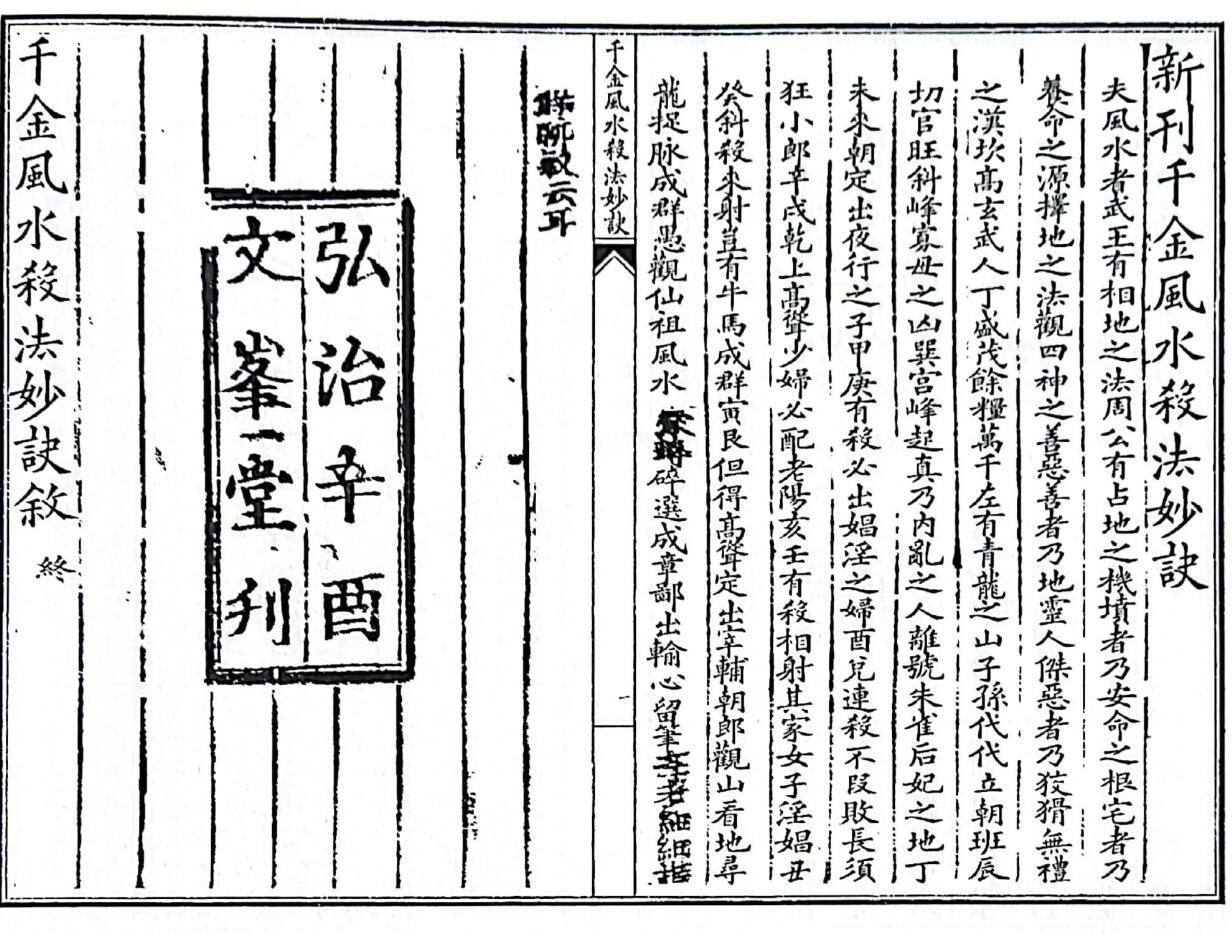 新刊千金風水殺法妙訣
夫風水者武王有相地之法周公有占地之機墳者乃安命之根宅者乃
養命之源擇地之法觀四神之善惡善者乃地靈人傑惡者乃狡猾無禮
之漢坎高玄武人丁盛茂餘糧萬千左有青龍之山子孫代代立朝班辰
切官旺斜峰寡母之凶巽宫峰起真乃内亂之人離號朱雀后妃之地丁
未來朝定出夜行之子甲庚有殺必出娼淫之婦酉兌連殺不叚敗長須
狂小郎辛戌乾上高聳少婦必配老陽亥壬有殺相射其家女子淫娼丑
癸斜殺來射豈有牛馬成群寅艮但得高聳定出宰輔朝郎觀山看地尋
龍捉脉成群愚觀仙祖風水碎選成章鄙出輸心留筆老細細
云耳
千金風水殺法妙訣
弘治辛酉
文峯堂刋
千金風水殺法妙訣敘 終